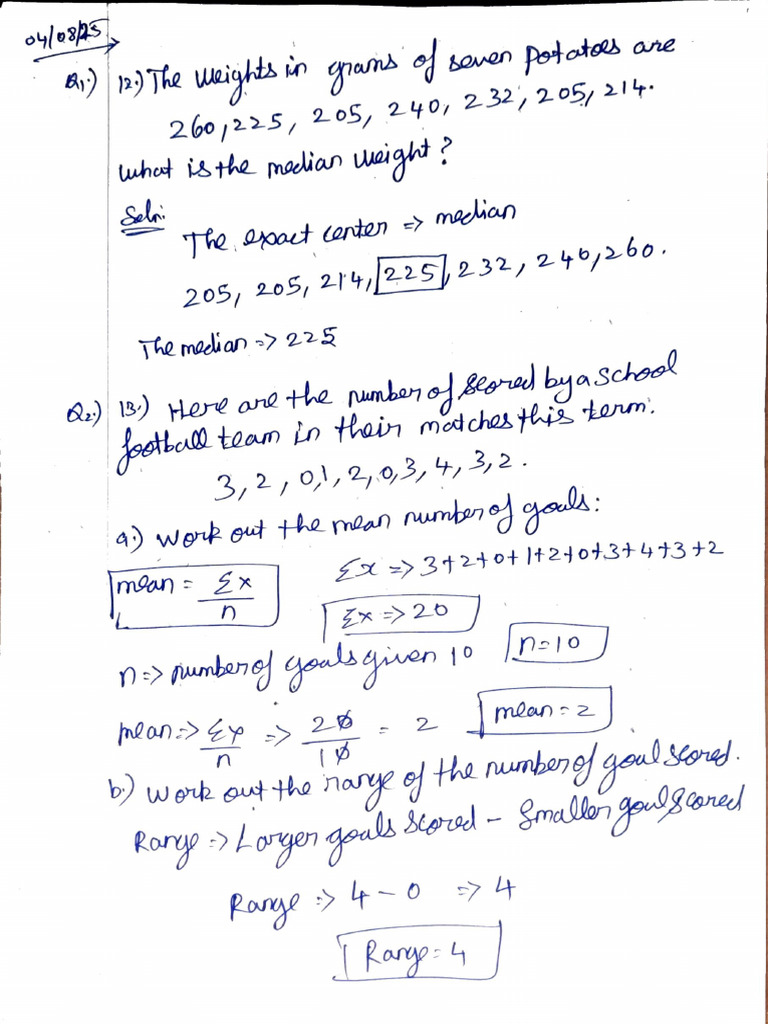 04/08/25
Q1.) 12.) The weights in grams of seven potatoes are
260, 225, 205, 240, 232, 205, 214.
What is the median weight?
Soln:
The exact center => median
205, 205, 214, 225, 232, 240, 260.
The median => 225
Q2.) 13.) Here are the number of scored by a school
football team in their matches this term.
3, 2, 0, 1, 2, 0, 3, 4, 3, 2.
a.) Work out the mean number of goals:
mean = Σx/n Σx => 3+2+0+1+2+0+3+4+3+2
Σx => 20
n => number of goals given 10 n=10
mean => Σx/n => 20/10 = 2 mean = 2
b.) Work out the range of the number of goal scored.
Range => Larger goals scored - Smaller goal scored
Range => 4 - 0 => 4
Range = 4